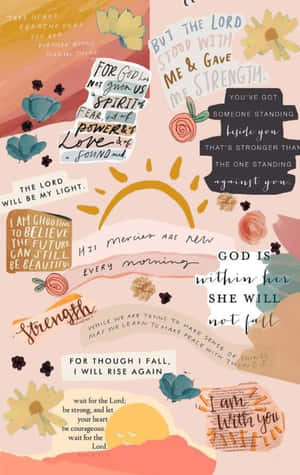 TAKE HEART
BREATHE DEEP
BUT THE LORD
STOOD WITH
ME & GAVE
ME STRENGTH.
FOR GOD has
Not given US
SPIRIT of
FEAR, but of
POWER & of
Love & of
a SOUND mind
YOU'VE GOT
SOMEONE STANDING
beside you
THAT'S STRONGER THAN
THE ONE STANDING
against you.
THE LORD
WILL BE MY LIGHT.
I AM CHOOSING
TO BELIEVE
THE FUTURE
CAN STILL
BE BEAUTIFUL
HIS MERCIES ARE NEW
EVERY MORNING
GOD IS
within her
SHE WILL
not fall
Strength
WHILE WE ARE TRYING TO MAKE SENSE OF THINGS
MAY WE LEARN TO MAKE PEACE WITH THINGS.
FOR THOUGH I FALL,
I WILL RISE AGAIN.
wait for the Lord;
be strong, and let
your heart
be courageous
wait for the
Lord.
I am
With you